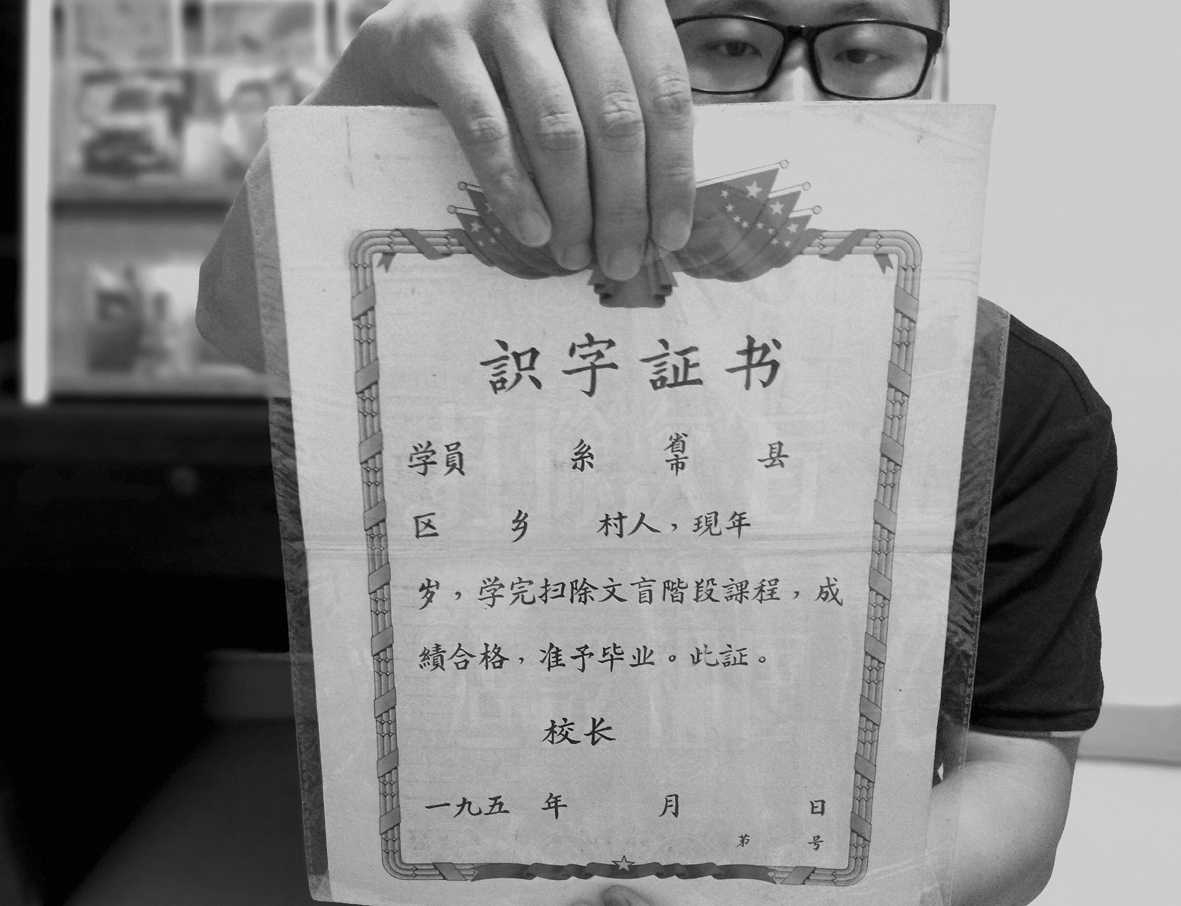 識字証书
学員 系 省市 县
区 乡 村人，現年
岁，学完扫除文盲階段課程，成
績合格，准予毕业。此証。
校长
一九五 年 月 日
第 号